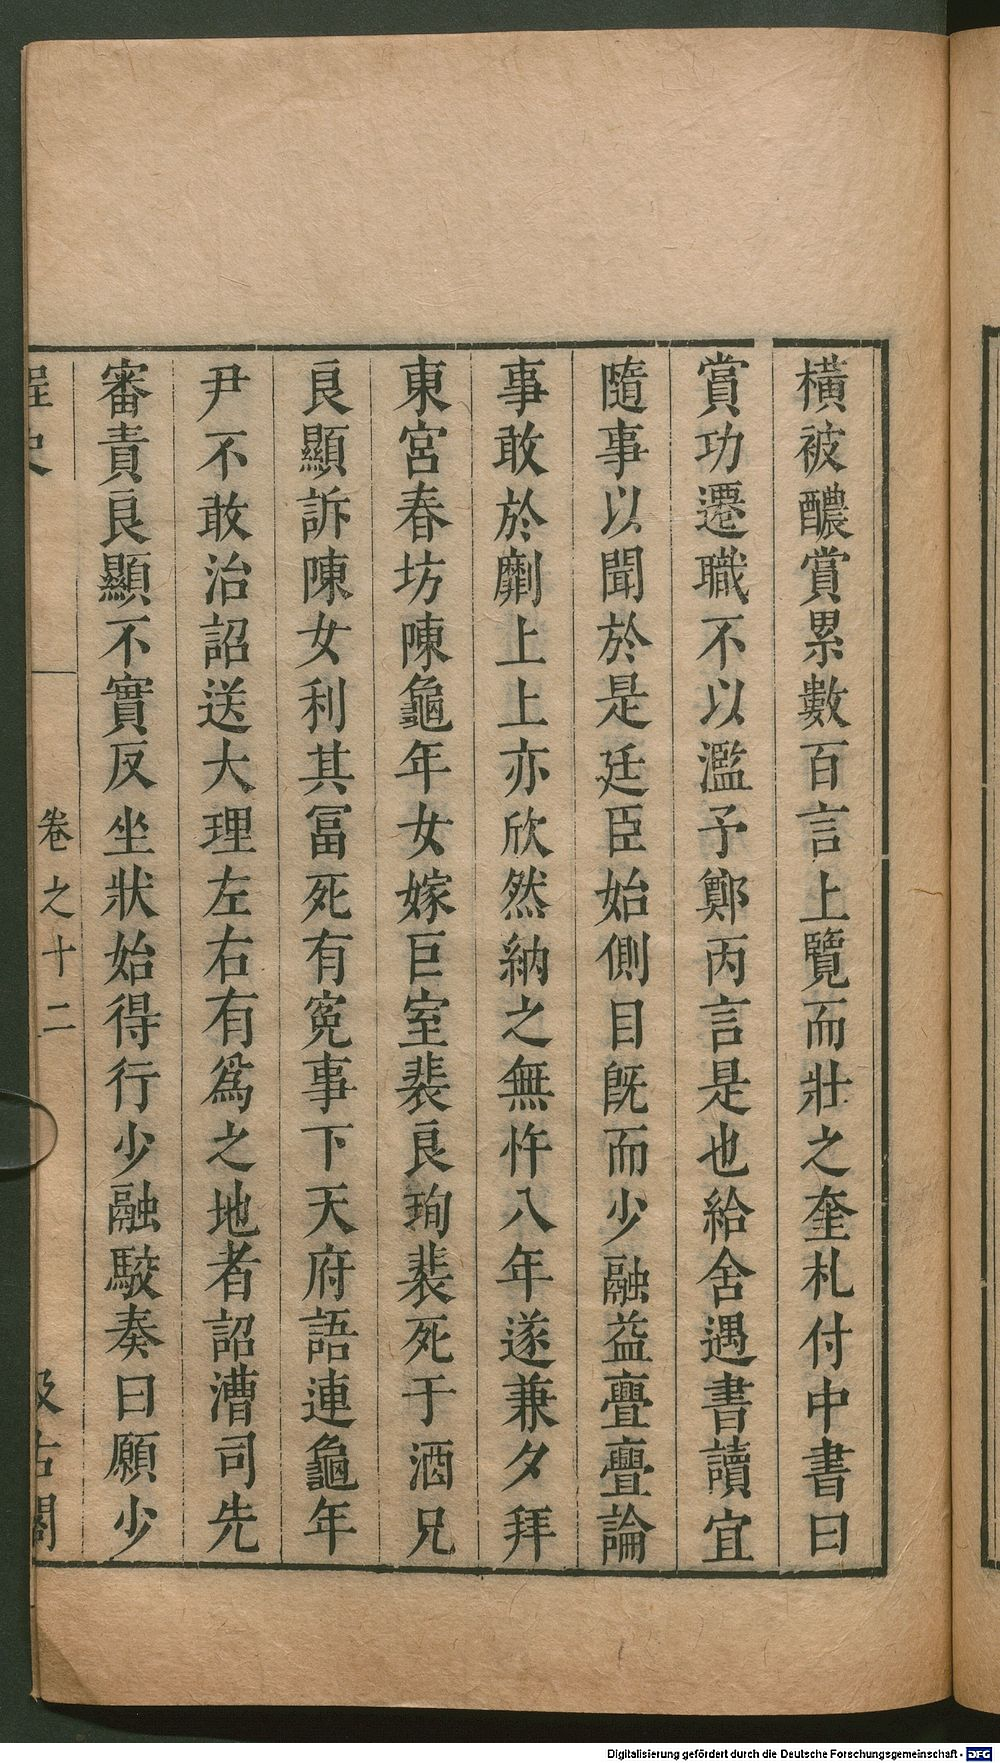 橫被醲賞累數百言上覽而壯之奎札付中書曰
賞功遷職不以濫予鄭丙言是也給舍遇書讀宜
隨事以聞於是廷臣始側目旣而少融益亹亹論
事敢於劘上上亦欣然納之無忤八年遂兼夕拜
東宮春坊陳龜年女嫁巨室裴良珣裴死于酒兄
良顯訴陳女利其冨死有寃事下天府語連龜年
尹不敢治詔送大理左右有爲之地者詔漕司先
審責良顯不實反坐狀始得行少融駮奏曰願少
桯史 卷之十二 汲古閣
Digitalisierung gefördert durch die Deutsche Forschungsgemeinschaft - DFG